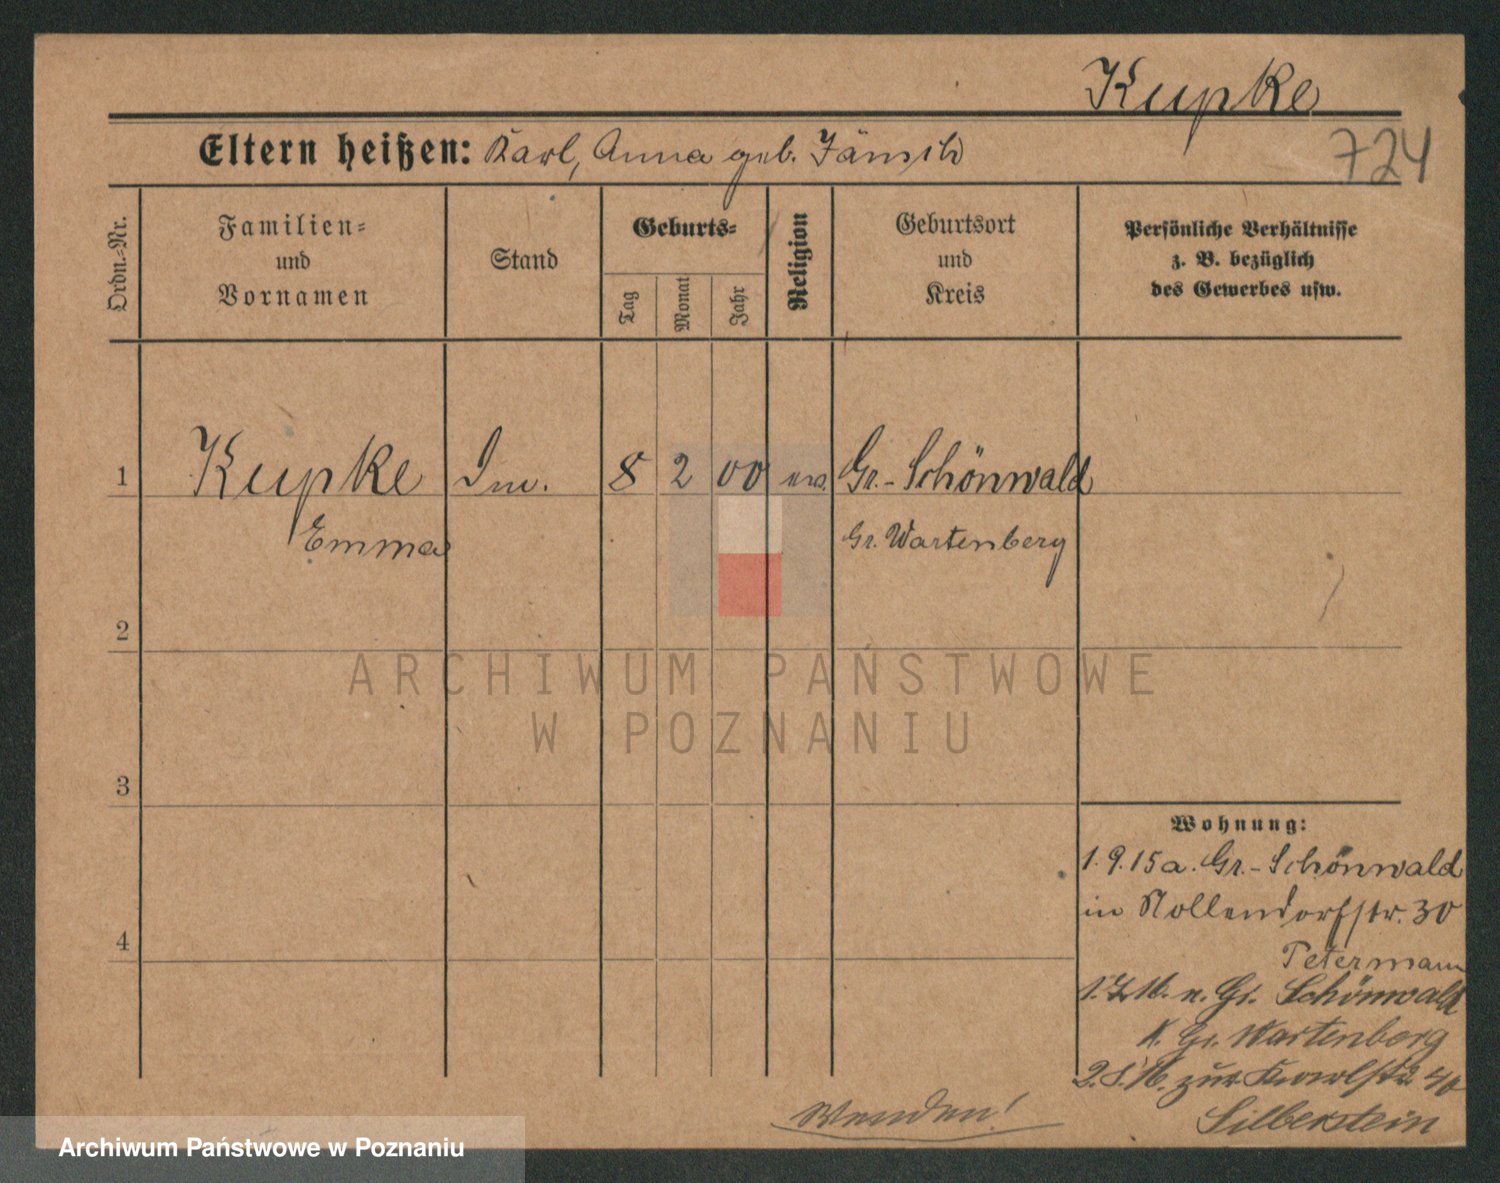 Kupke
724
Eltern heißen: Karl, Anna geb.
Ordn.-Nr.
Familien-
und
Vornamen
Stand
Geburts-
Tag
Monat
Jahr
Religion
Geburtsort
und
Kreis
Persönliche Verhältnisse
z. B. bezüglich
des Gewerbes usw.
1
Kupke
8
2
00
Gr.-Schönwald
Emma
Gr. Wartenberg
2
ARCHIWUM PAŃSTWOWE
W POZNANIU
3
Wohnung:
1.9.15 a. Gr.-Schönwald
in Nollendorfstr. 30
4
Petermann
n. Gr. Schönwald
K. Gr. Wartenberg
zur 40
Silberstein
Wenden!
Archiwum Państwowe w Poznaniu